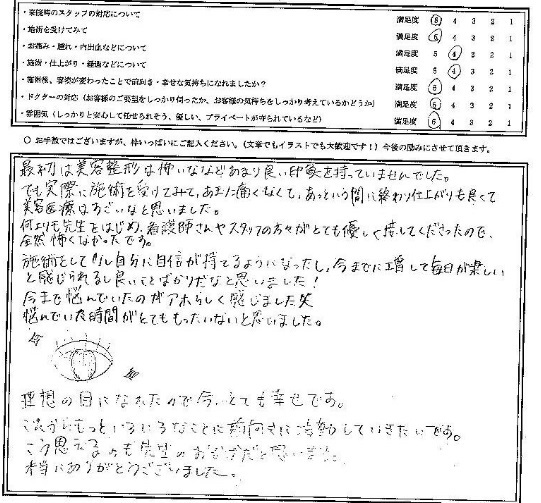 ・来院時のスタッフの対応について 満足度 5 4 3 2 1
・施術を受けてみて 満足度 5 4 3 2 1
・お痛み・腫れ・内出血などについて 満足度 5 4 3 2 1
・施術・仕上がり・経過などについて 満足度 5 4 3 2 1
・施術後、容姿が変わったことで前向き・幸せな気持ちになれましたか? 満足度 5 4 3 2 1
・ドクターの対応(お客様のご要望をしっかり伺ったか、お客様の気持ちをしっかり考えているかどうか) 満足度 5 4 3 2 1
・雰囲気(しっかりと安心して任せられそう、優しい、プライベートが守られているなど) 満足度 5 4 3 2 1
○ お手数ではございますが、枠いっぱいにご記入ください。(文章でもイラストでも大歓迎です!)今後の励みにさせて頂きます。
最初は美容整形は怖いなどあまり良い印象を持っていませんでした。
でも実際に施術を受けてみて、あまり痛くなくて、あっという間に終わり仕上がりも良くて
美容医療はすごいなと思いました。
何よりも先生をはじめ、看護師さんやスタッフの方々がとても優しく接してくださったので、
全然怖くなかったです。
施術をして少し自分に自信が持てるようになったし、今までに増して毎日が楽しい
と感じられるし良いことばかりだなと思いました!
今まで悩んでいたのがアホらしく感じました笑
悩んでいた時間がとてももったいないと思いました。
理想の目になれたので今、とても幸せです。
これからもっといろいろなことに前向きに活動していきたいです。
こう思えるのも先生のおかげだと思います。
本当にありがとうございました。